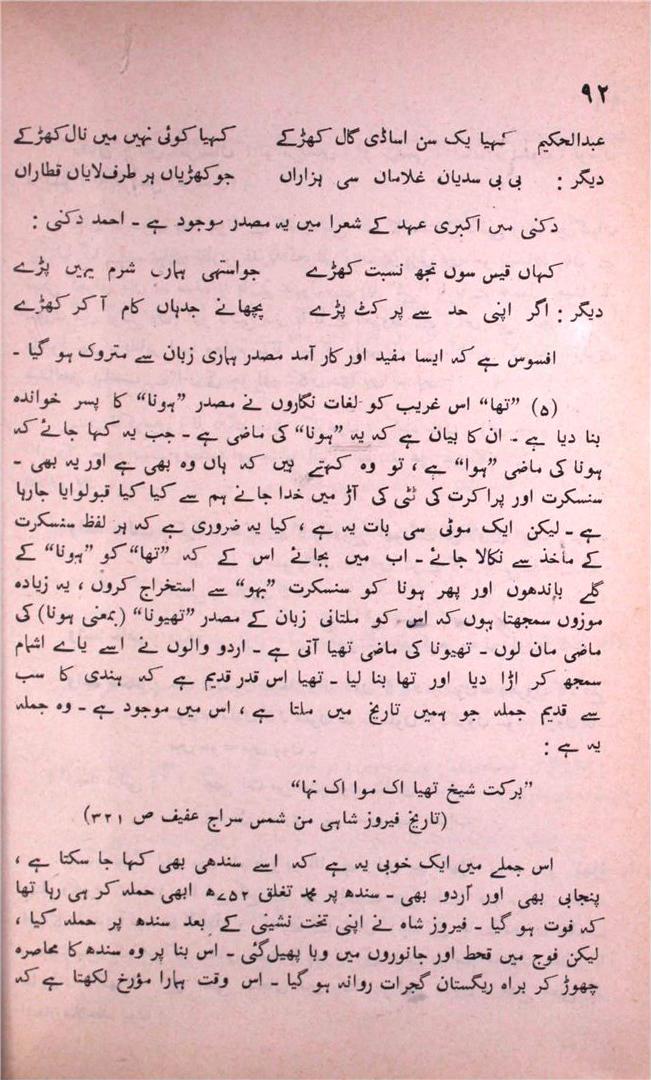 ۹۲
عبدالحکیم کہیا یک سن اساڈی گال کھڑکے کہیا کوئی نہیں میں نال کھڑکے
دیگر : بی بی سدیان غلاماں سی ہزاراں جو کھڑیاں ہر طرف لایاں قطاراں
دکنی میں اکبری عہد کے شعرا میں یہ مصدر موجود ہے ۔ احمد دکنی :
کہاں قیس سوں تجھ نسبت کھڑے جو استھی ہارے شرم یہیں پڑے
دیگر : اگر اپنی حد سے پرکٹ پڑے پچھانے جدہاں کام آ کر کھڑے
افسوس ہے کہ ایسا مفید اور کار آمد مصدر ہاری زبان سے متروک ہو گیا ۔
(۵) ”تھا“ اس غریب کو لغات نگاروں نے مصدر ”ہونا“ کا پسر خواندہ
بنا دیا ہے ۔ ان کا بیان ہے کہ یہ ”ہونا“ کی ماضی ہے ۔ جب یہ کہا جائے کہ
ہونا کی ماضی ”ہوا“ ہے ، تو وہ کہتے ہیں کہ ہاں وہ بھی ہے اور یہ بھی ۔
سنسکرت اور پراکرت کی ٹٹی کی آڑ میں خدا جانے ہم سے کیا کیا قبولوایا جارہا
ہے ۔ لیکن ایک موٹی سی بات یہ ہے ، کیا یہ ضروری ہے کہ ہر لفظ سنسکرت
کے مأخذ سے نکالا جائے ۔ اب میں بجائے اس کے کہ ”تھا“ کو ”ہونا“ کے
گلے باندھوں اور پھر ہونا کو سنسکرت ”بہو“ سے استخراج کروں ، یہ زیادہ
موزوں سمجھتا ہوں کہ اس کو ملتانی زبان کے مصدر ”تھیونا“ (بمعنی ہونا) کی
ماضی مان لوں ۔ تھیونا کی ماضی تھیا آتی ہے ۔ اردو والوں نے اسے یاے اشمام
سمجھ کر اڑا دیا اور تھا بنا لیا ۔ تھیا اس قدر قدیم ہے کہ ہندی کا سب
سے قدیم جملہ جو ہمیں تاریخ میں ملتا ہے ، اس میں موجود ہے ۔ وہ جملہ
یہ ہے :
”برکت شیخ تھیا اک موا اک نہا“
(تاریخ فیروز شاہی من شمس سراج عفیف ص ۳۲۱)
اس جملے میں ایک خوبی یہ ہے کہ اسے سندھی بھی کہا جا سکتا ہے ،
پنجابی بھی اور اُردو بھی ۔ سندھ پر محمد تغلق ۷۵۲ھ ابھی حملہ کر ہی رہا تھا
کہ فوت ہو گیا ۔ فیروز شاہ نے اپنی تخت نشینی کے بعد سندھ پر حملہ کیا ،
لیکن فوج میں قحط اور جانوروں میں وبا پھیل گئی ۔ اس بنا پر وہ سندھ کا محاصرہ
چھوڑ کر براہ ریگستان گجرات روانہ ہو گیا ۔ اس وقت ہارا مؤرخ لکھتا ہے کہ